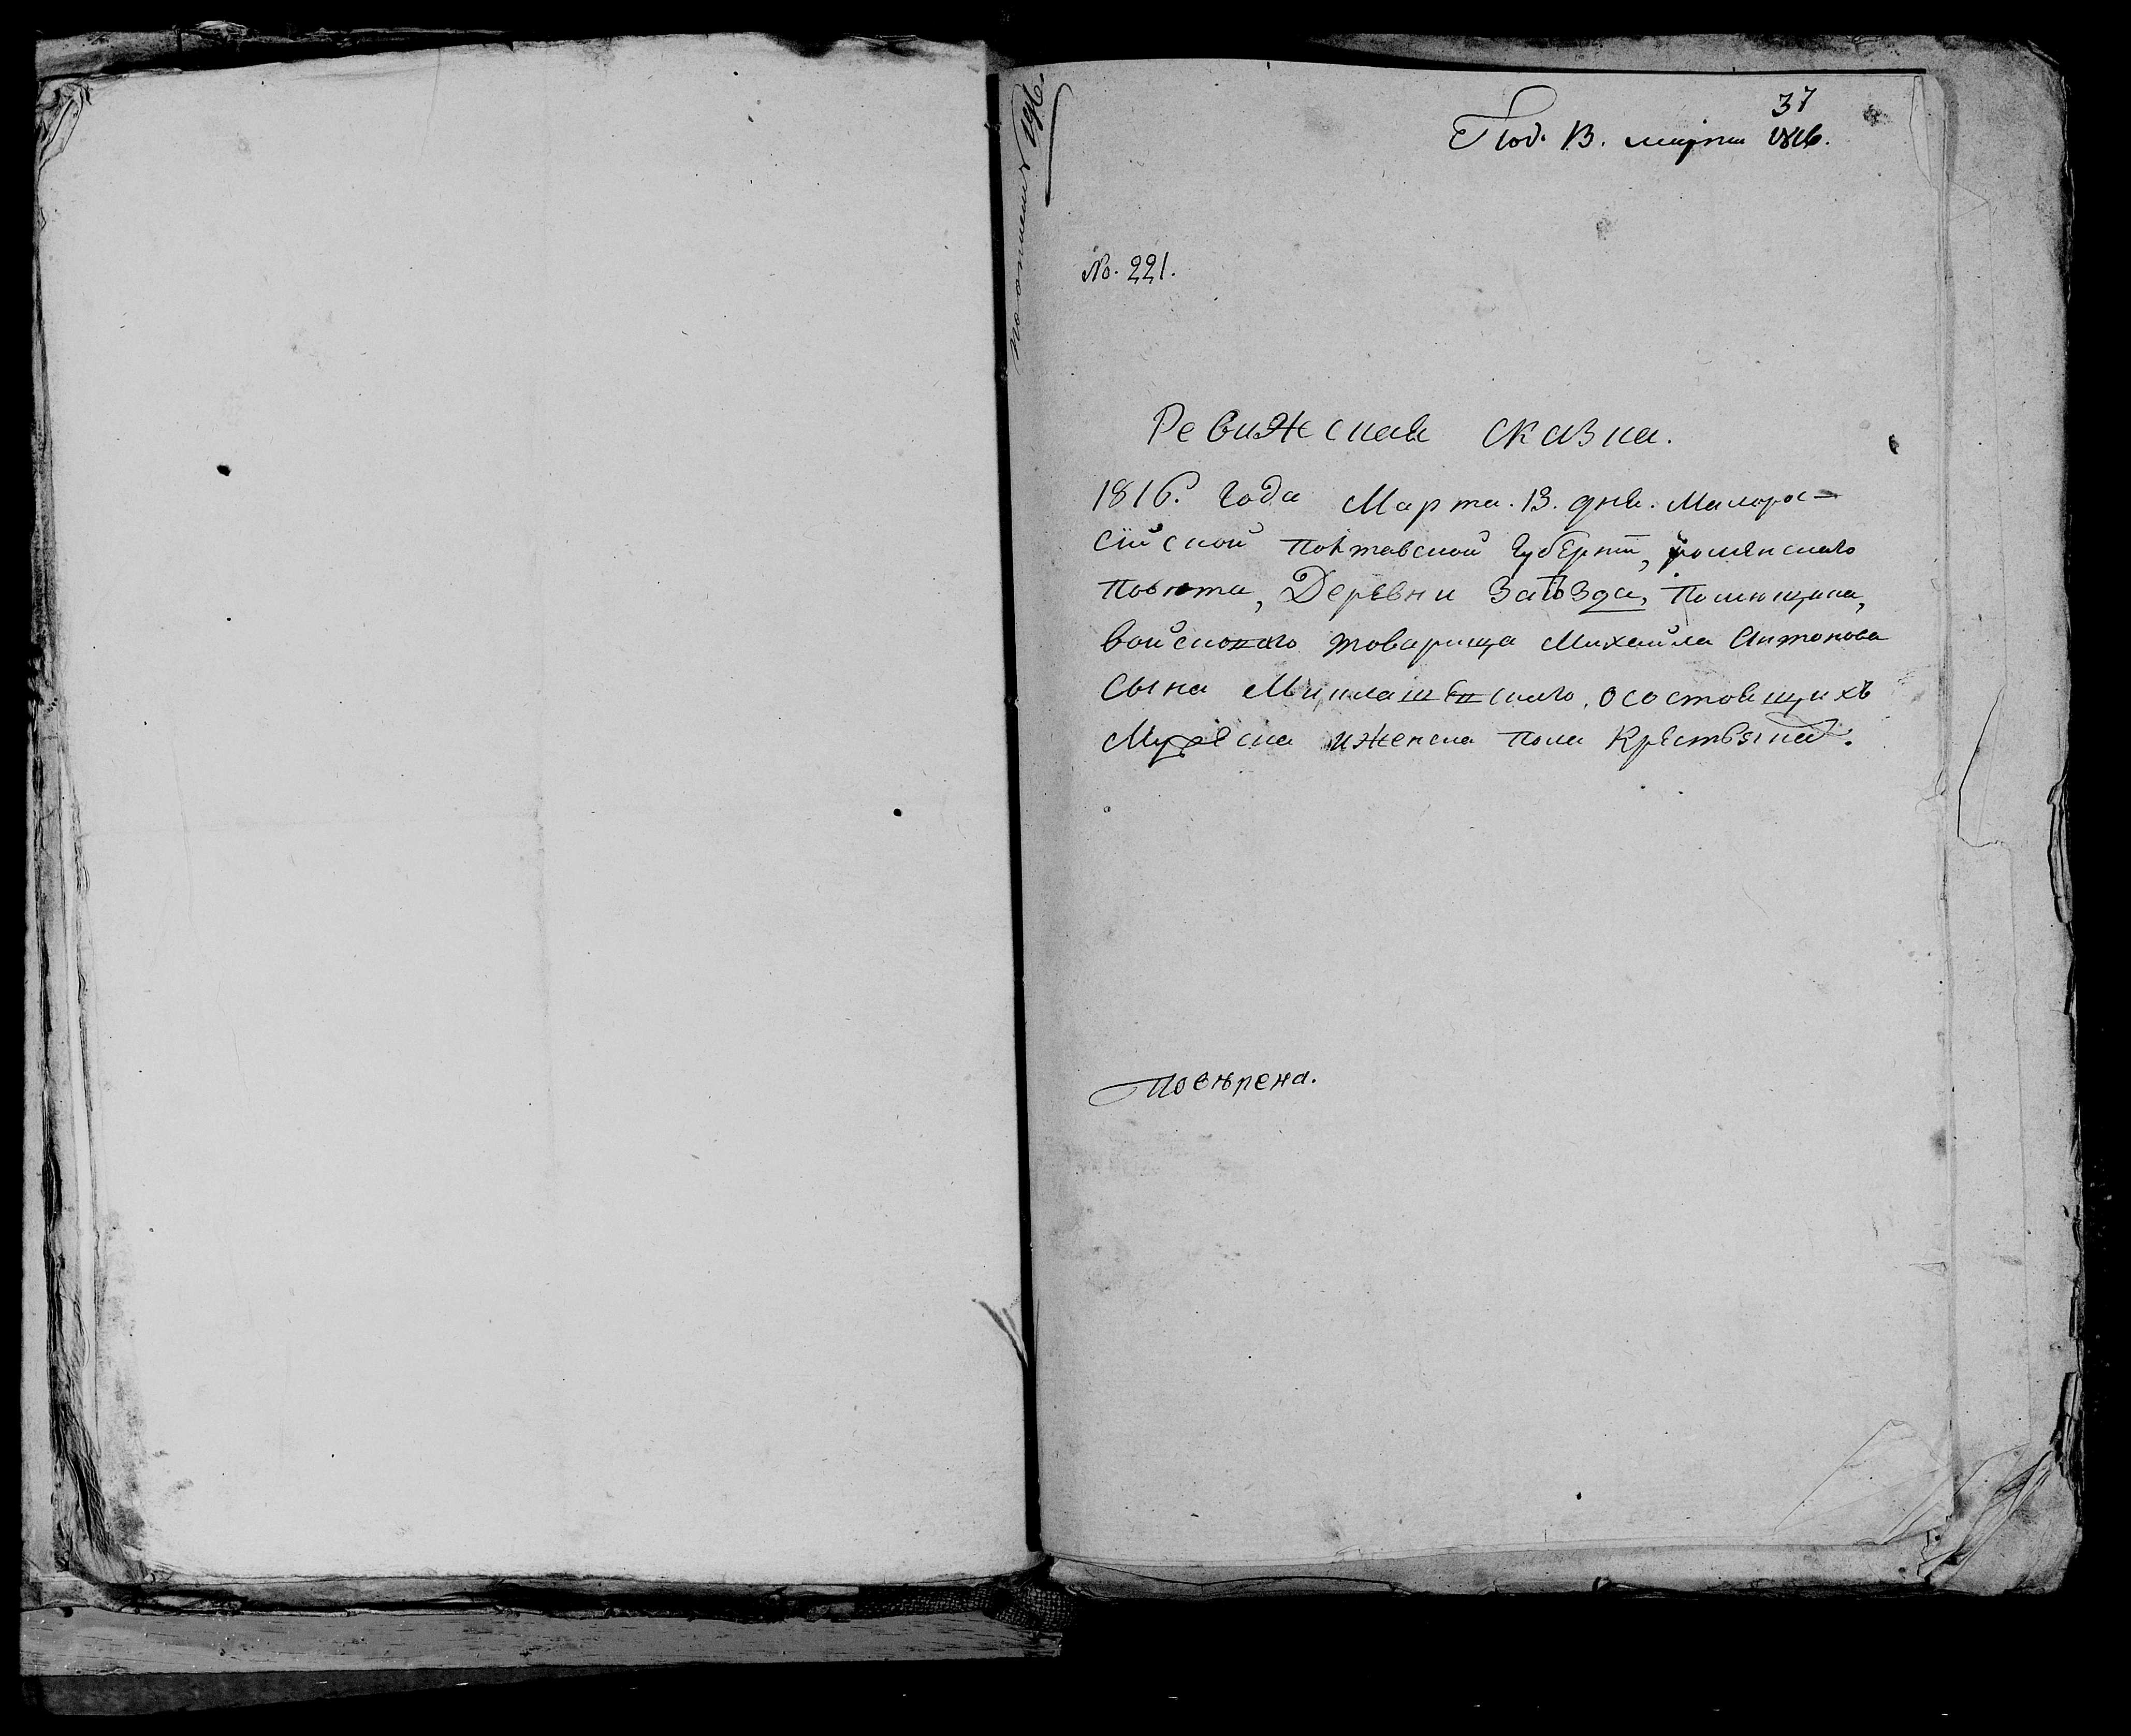 37
Под. 13. марта 1816.
по описи № 196
No. 221.
Ревижская сказка.
1816. года Марта. 13. дня. Малорос-
сїйской Полтавской губернїи, роменского
повѣта, Деревни Заѣзда, Помѣщика,
войскового товарища Михайла Антонова
сына Миклашевского. осостоящихъ
Мужеска иженска пола Крестьянах.
Повѣрена.